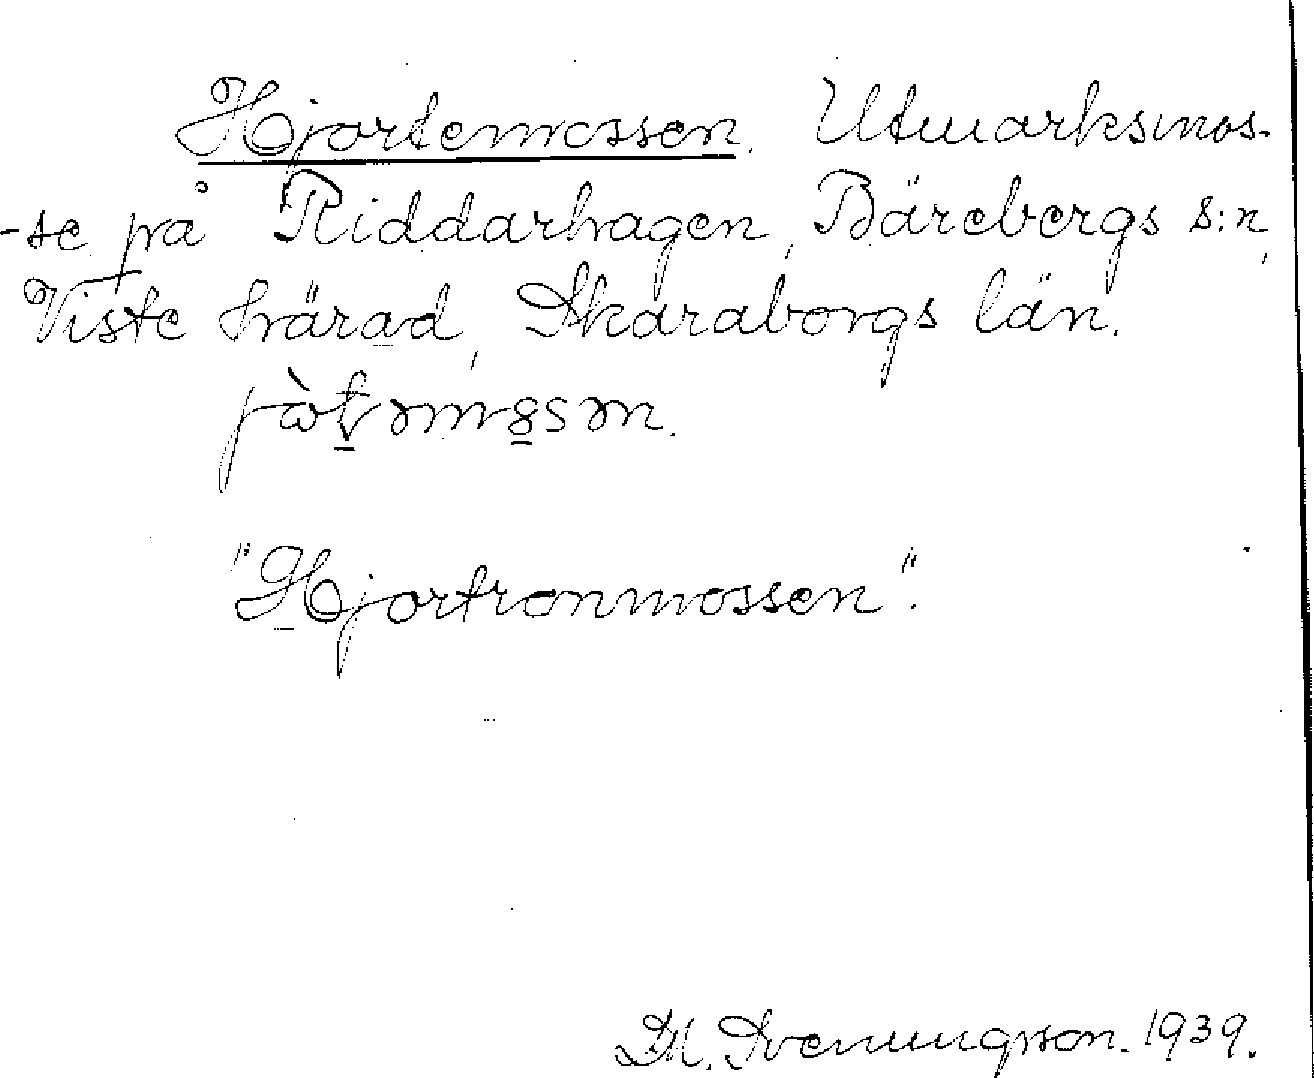 Hjortemossen. Utmarksmos-
-se på Riddarhagen, Bärebergs s:n,
Viste härad, Skaraborgs län.
"Hjortronmossen".
Svenungsson. 1939.